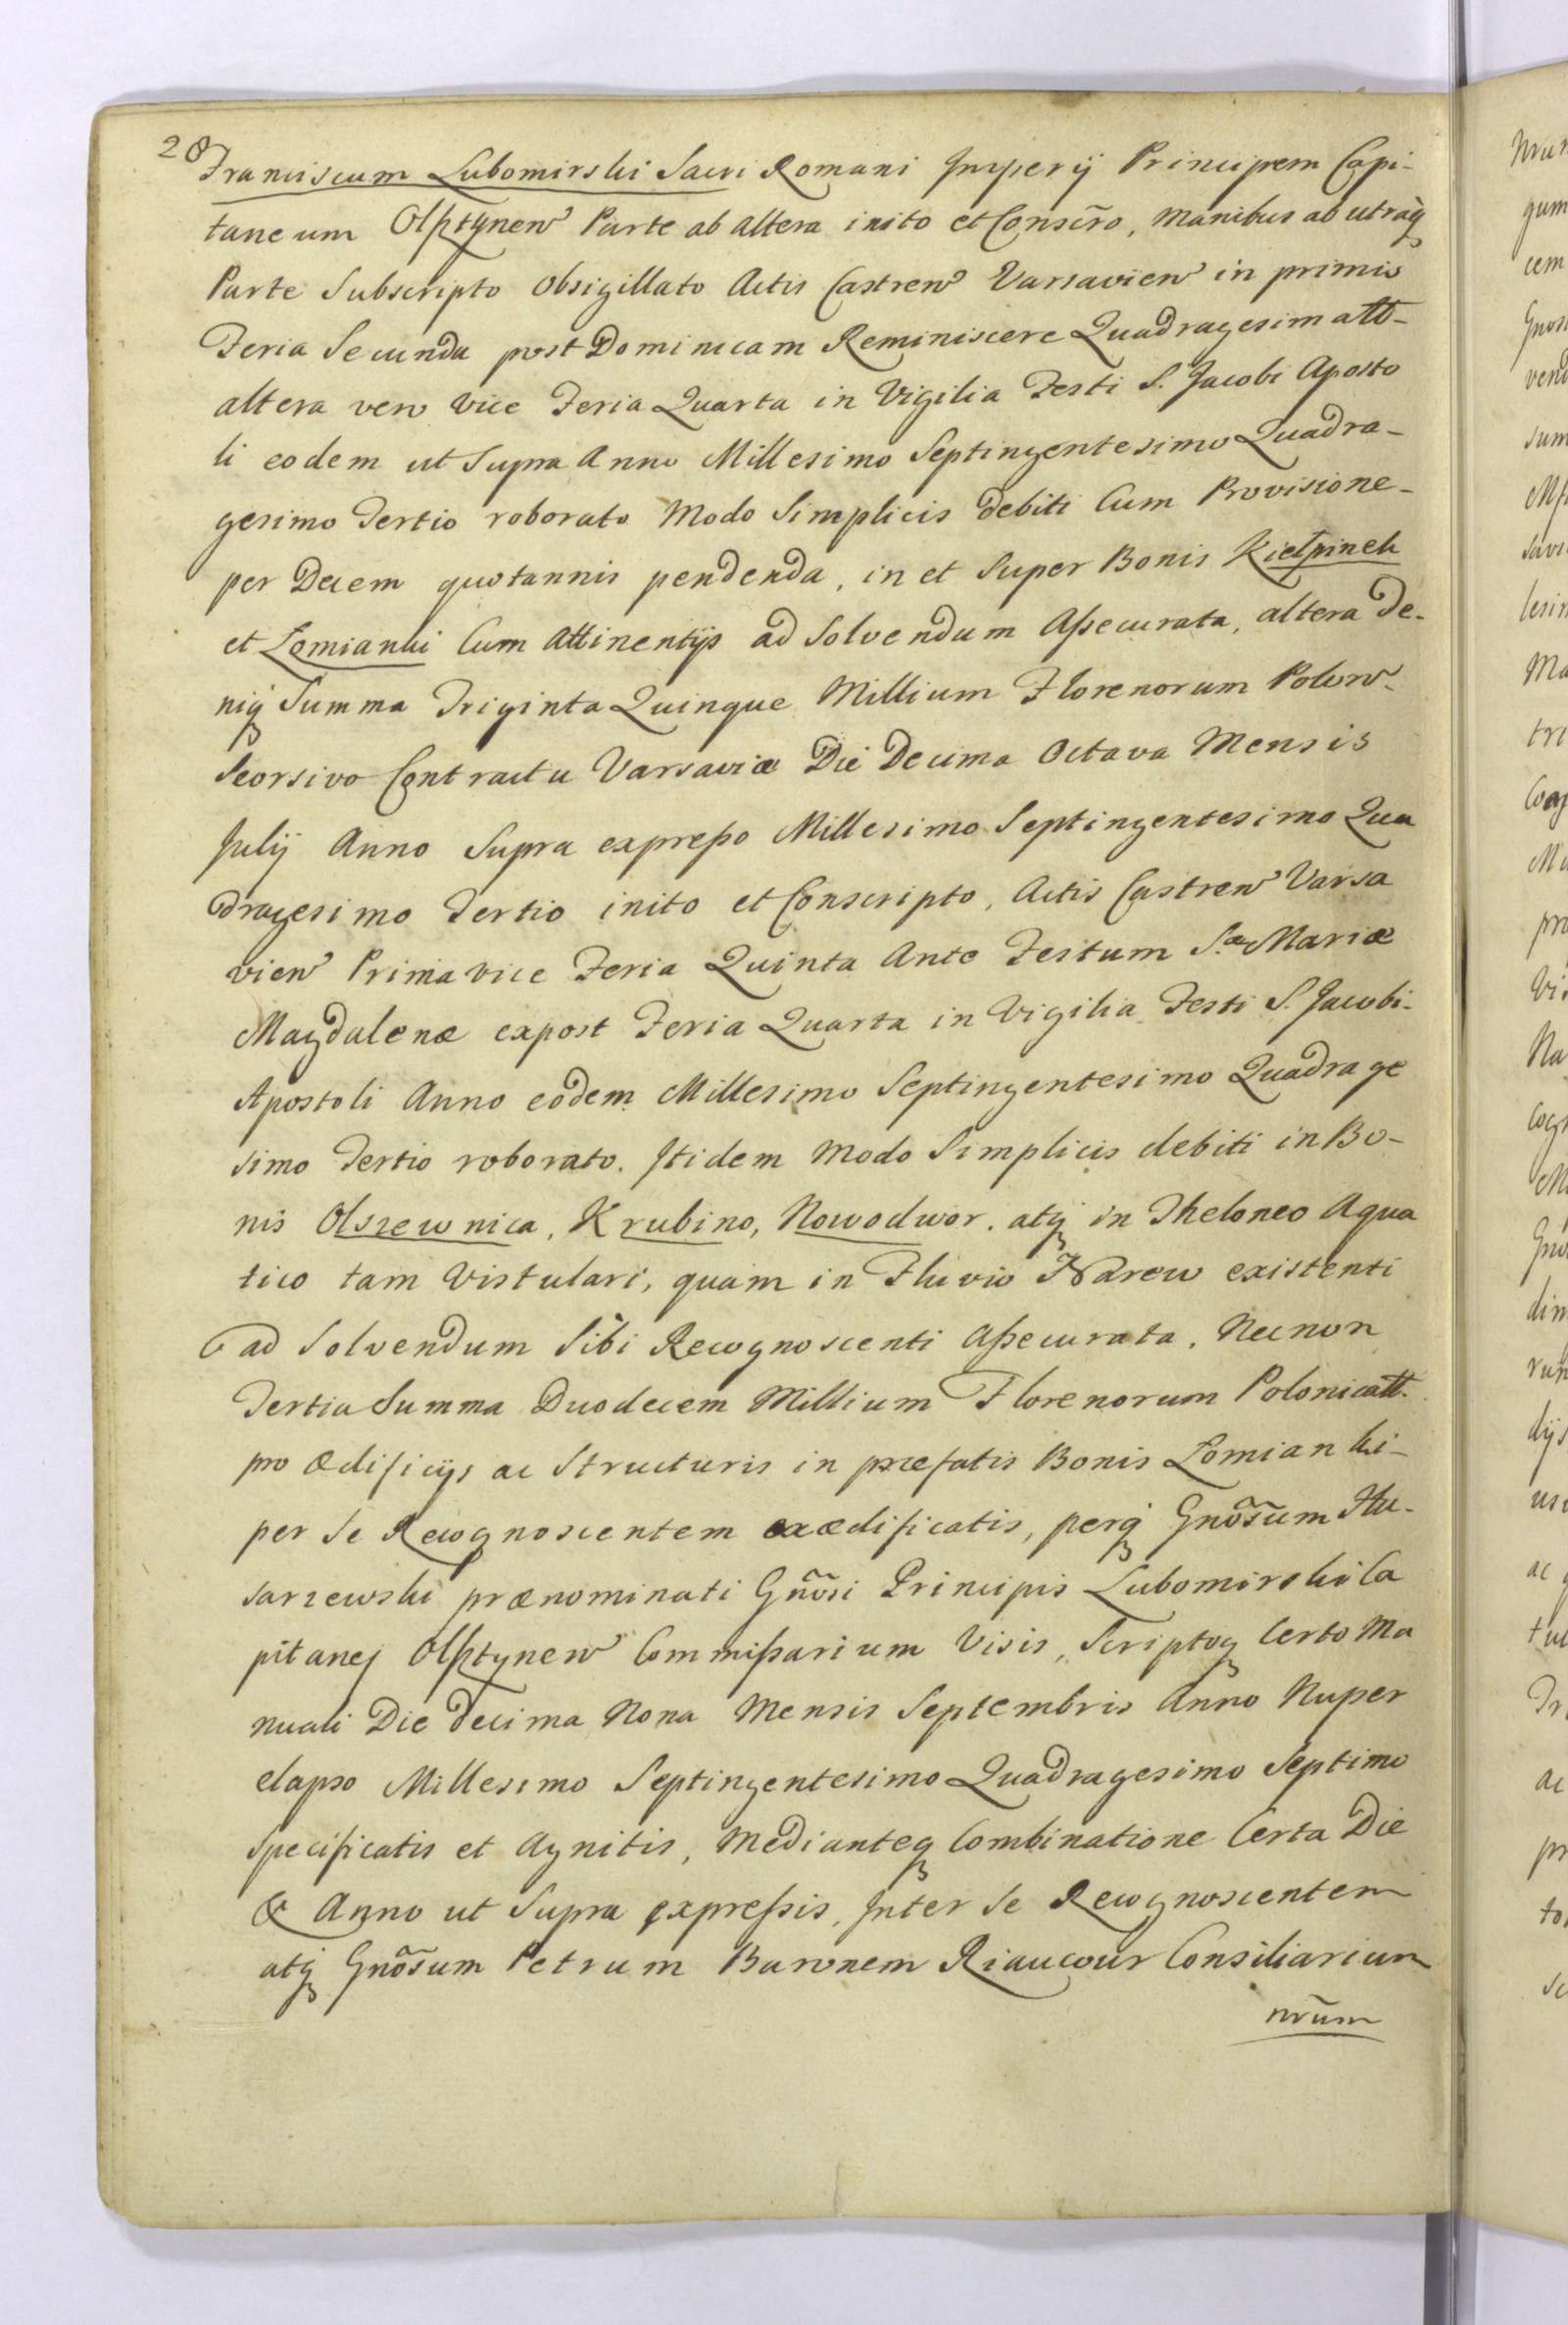 28
Franciscum Lubomirski Sacri Romani Imperij Principem Capi-
taneum Olsztynen Parte ab altera inito et Conscr̃o, manibus ab utraq̃
Parte Subscripto Obsigillato Actis Castren Varsavien in primis
Feria Secunda post Dominicam Reminiscere Quadragesimatt-
altera vero vice Feria Quarta in Vigilia Festi S. Jacobi Aposto
li eodem ut Supra Anno Millesimo Septingentesimo Quadra-
gesimo Tertio roborato Modo Simplicis debiti Cum Provisione-
per Decem quotannis pendenda, in et Super Bonis Kiełpinek
et Łomianki Cum Attinentijs ad Solvendum Assecurata, altera De-
niq Summa Triginta Quinque Millium Florenorum Polon-
Seorsivo Contractu Varsaviæ Die Decima Octava Mensis
Julij Anno Supra expresso Millesimo Septingentesimo Qua
dragesimo Tertio inito et Conscripto, Actis Castren Varsa
vien Prima vice Feria Quinta Ante Festum S.æ Mariæ
Magdalenæ expost Feria Quarta in Vigilia Festi S. Jacobi-
Apostoli Anno eodem Millesimo Septingentesimo Quadrage
simo Tertio roborato. Itidem Modo Simplicis debiti in Bo-
nis Olszewnica, Krubino, Nowodwor. atq in Theloneo Aqua
tico tam Vistulari, quam in Fluvio Narew existenti
ad Solvendum Sibi Recognoscenti Assecurata, Necnon
Tertia Summa Duodecem Millium Florenorum Polonicatt.
pro Ædificijs ac Structuris in præfatis Bonis Łomianki-
per Se Recognoscentem exædificatis, perq Gnõsum Stu-
sarzewski prænominati Gñosi Principis Lubomirski Ca
pitanej Olsztynen Commissarium Visis, Scriptoq Certo Ma
nuali Die decima Nona Mensis Septembris Anno Nuper
elapso Millesimo Septingentesimo Quadragesimo Septimo
Specificatis et Agnitis, Medianteq Combinatione Certa Die
& Anno ut Supra expressis, Inter Se Recognoscentem
atq Gnõsum Petrum Baronem Riaucour Consiliarium
nrũm